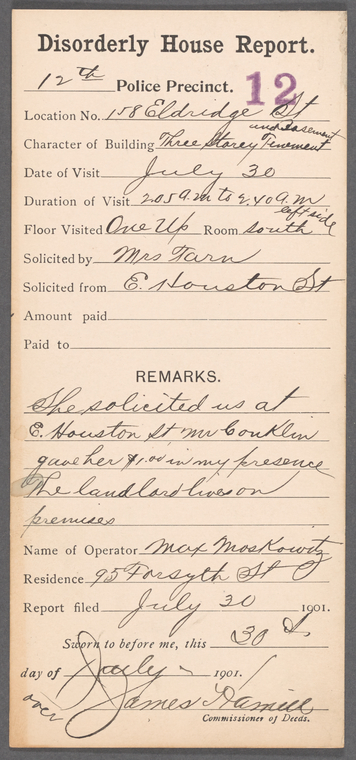 Disorderly House Report.
12th Police Precinct. 12
Location No. 158 Eldridge St
and Basement
Character of Building Three Storey Tenement
Date of Visit July 30
Duration of Visit 2.05 A.M to 2.40 A.M
left side
Floor Visited One Up Room south
Solicited by Mrs Farn
Solicited from E. Houston St
Amount paid
Paid to
REMARKS.
She solicited us at
E. Houston St Mr Conklin
gave her $1.00 in my presence
The landlord lives on
premises
Name of Operator Max Moskowitz
Residence 95 Forsyth St
Report filed July 30 1901.
Sworn to before me, this 30
day of July 1901.
over James Hamill
Commissioner of Deeds.